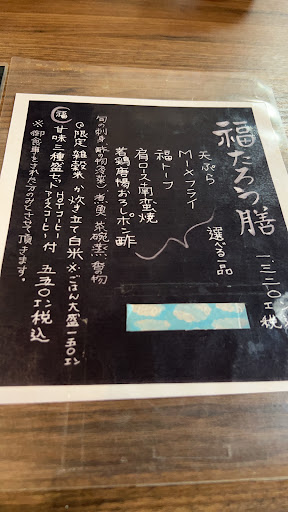 福たろう膳 一三二〇円 税
選べる一品
天ぷら
MIXフライ
福トーフ
肩ロース南蛮焼
若鶏唐揚おろしポン酢
旬の刺身 酢物 煮魚 茶碗蒸 香物
◎限定 雑穀米 か 炊き立て白米 ※ごはん大盛一五〇円
福 甘味三種盛セット HOTコーヒー アイスコーヒー 付 五五〇円 税込
※御食事をされた方のみとさせて頂きます。